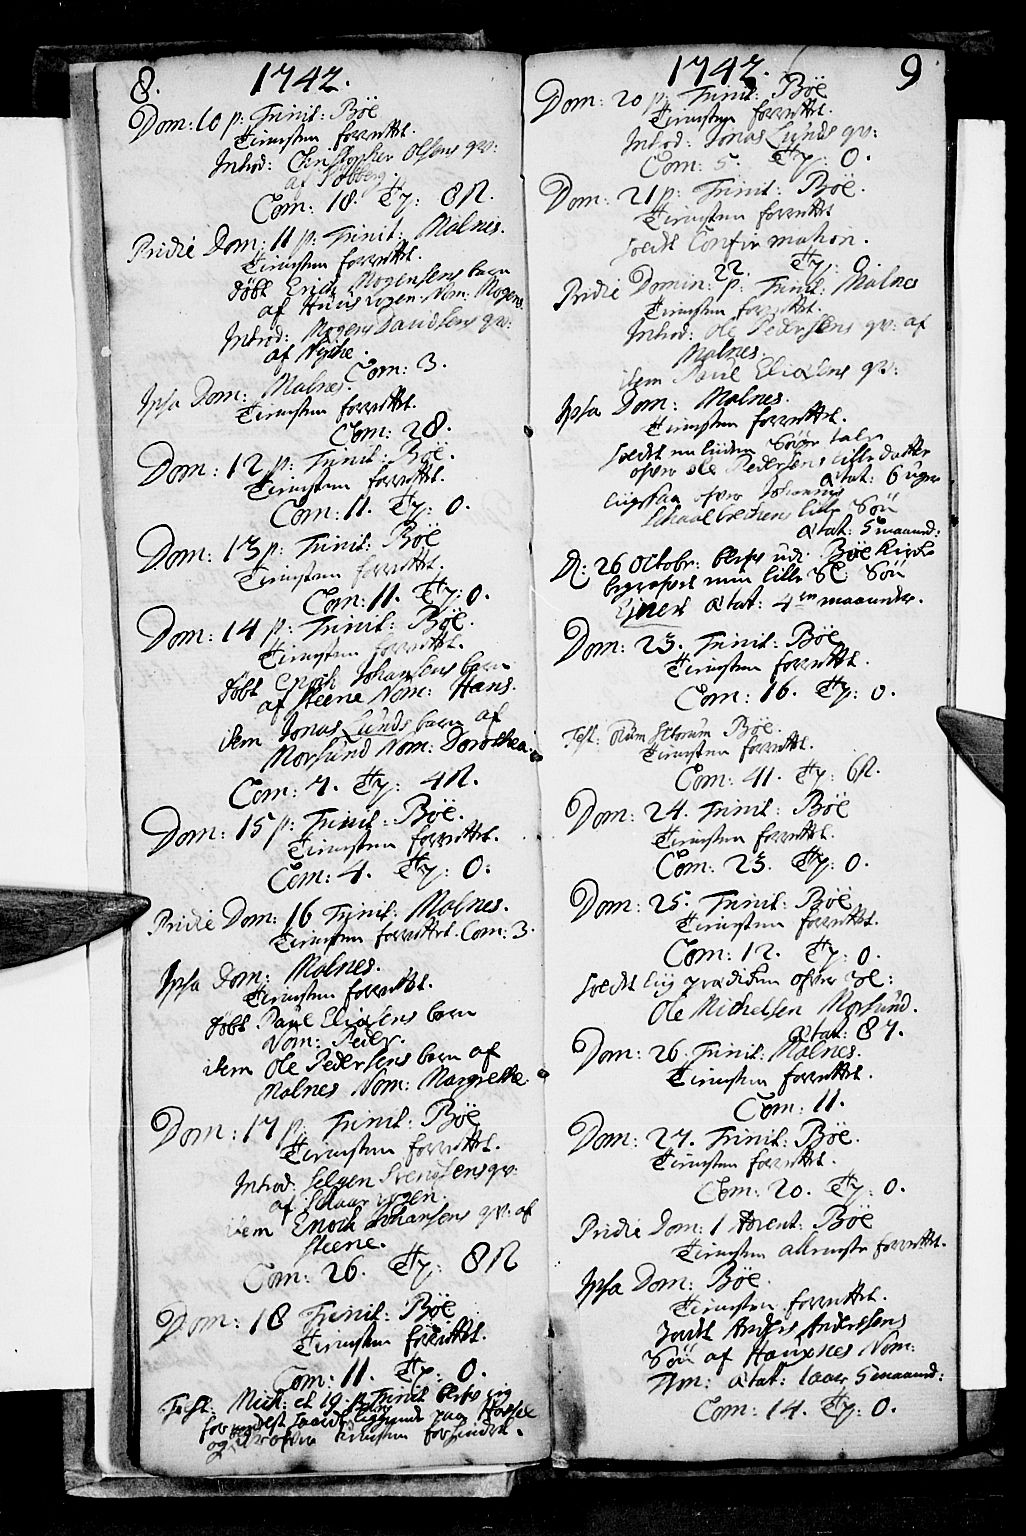 8. 1742.
Dom: 10 p: Trinit: Böe
Tienesten forrettet.
Introd: Christopher Olsens qv:
af
Com: 18. Ty: 8 R.
Pridie Dom: 11 p: Trinit: Malnes.
Tienesten forrettet.
döbt Erich Mogensens barn
af Huusvogen. Nom: Mogens
Introd: Mogens Davidsens qv:
af Nyche.
Com: 3.
Ipsa Dom: Malnes.
Tienesten forrettet.
Com: 28.
Dom: 12 p: Trinit: Böe.
Tienesten forrettet.
Com: 11. Ty: 0.
Dom: 13 p: Trinit: Böe
Tienesten forrettet.
Com: 11. Ty: 0.
Dom: 14 p: Trinit: Böe.
Tienesten forrettet.
döbt Enoch Johansens barn
af Steene Nom: Hans.
item Jonas Lunds barn af
Morsund Nom: Dorothea.
Com: 7. Ty: 4 R.
Dom: 15 p: Trinit: Böe.
Tienesten forrettet.
Com: 4. Ty: 0.
Pridie Dom: 16 Trinit: Malnes.
Tienesten forrettet. Com: 3.
Ipsa Dom: Malnes.
Tienesten forrettet.
döbt Paul Eliasens barn
Nom: Peder.
item Ole Pedersens barn af
Malnes Nom: Margrethe
Dom: 17 p: Trinit: Böe
Tienesten forrettet.
Introd: Svendsens qv:
af
item Enoch Johansens qv: af
Steene.
Com: 26. Ty: 8 R
Dom: 18 Trinit: Böe
Tienesten forrettet.
Com: 11. Ty: 0.
Fest: Mich: et 19. p. Trinit
liggende paa
og Tienesten forhindret.
1742. 9
Dom: 20 p: Trinit: Böe
Tienesten forrettet.
Introd: Jonas Lunds qv:
Com: 5. Ty: 0.
Dom: 21 p: Trinit: Böe.
Tienesten forrettet
holdt Confirmation.
Ty: 0.
Pridie Domin: 22. p: Trinit: Malnes
Tienesten forrettet.
Introd: Ole Pedersens qv: af
Malnes.
item Paul Eliasens qv:
Ipsa Dom: Malnes.
Tienesten forrettet.
holdt en liiden Sörge tale
ofver Ole Pedersens lille datter
ætat: 6 uger
liigesaa ofver Johannes
lille Sön
ætat: 5 maaned:
D: 26 Octobr: blefv udi Böe Kirke
begrafvet min lille Sl: Sön
Ejnert ætat: 4 maaneder.
Dom: 23. Trinit: Böe
Tienesten forrettet.
Com: 16. Ty: 0.
Fest: Omn Sctorum Böe.
Tienesten forrettet.
Com: 41. Ty: 6 R.
Dom: 24. Trinit: Böe
Tienesten forrettet.
Com: 23. Ty: 0.
Dom: 25. Trinit: Böe
Tienesten forrettet.
Com: 12. Ty: 0.
holdt liig prædiken ofver Sl:
Ole Michelsen Morsund.
ætat: 87.
Dom: 26. Trinit: Malnes.
Tienesten forrettet.
Com: 11.
Dom: 27. Trinit: Böe.
Tienesten forrettet.
Com: 20. Ty: 0.
Pridie Dom: 1 Advent: Böe
Tienesten allene forrettet.
Ipsa Dom: Böe.
Tienesten forrettet.
Anders Anderssens
Sön af Nom:
ætat: 1 aar 5 maaned:
Com: 14. Ty: 0.